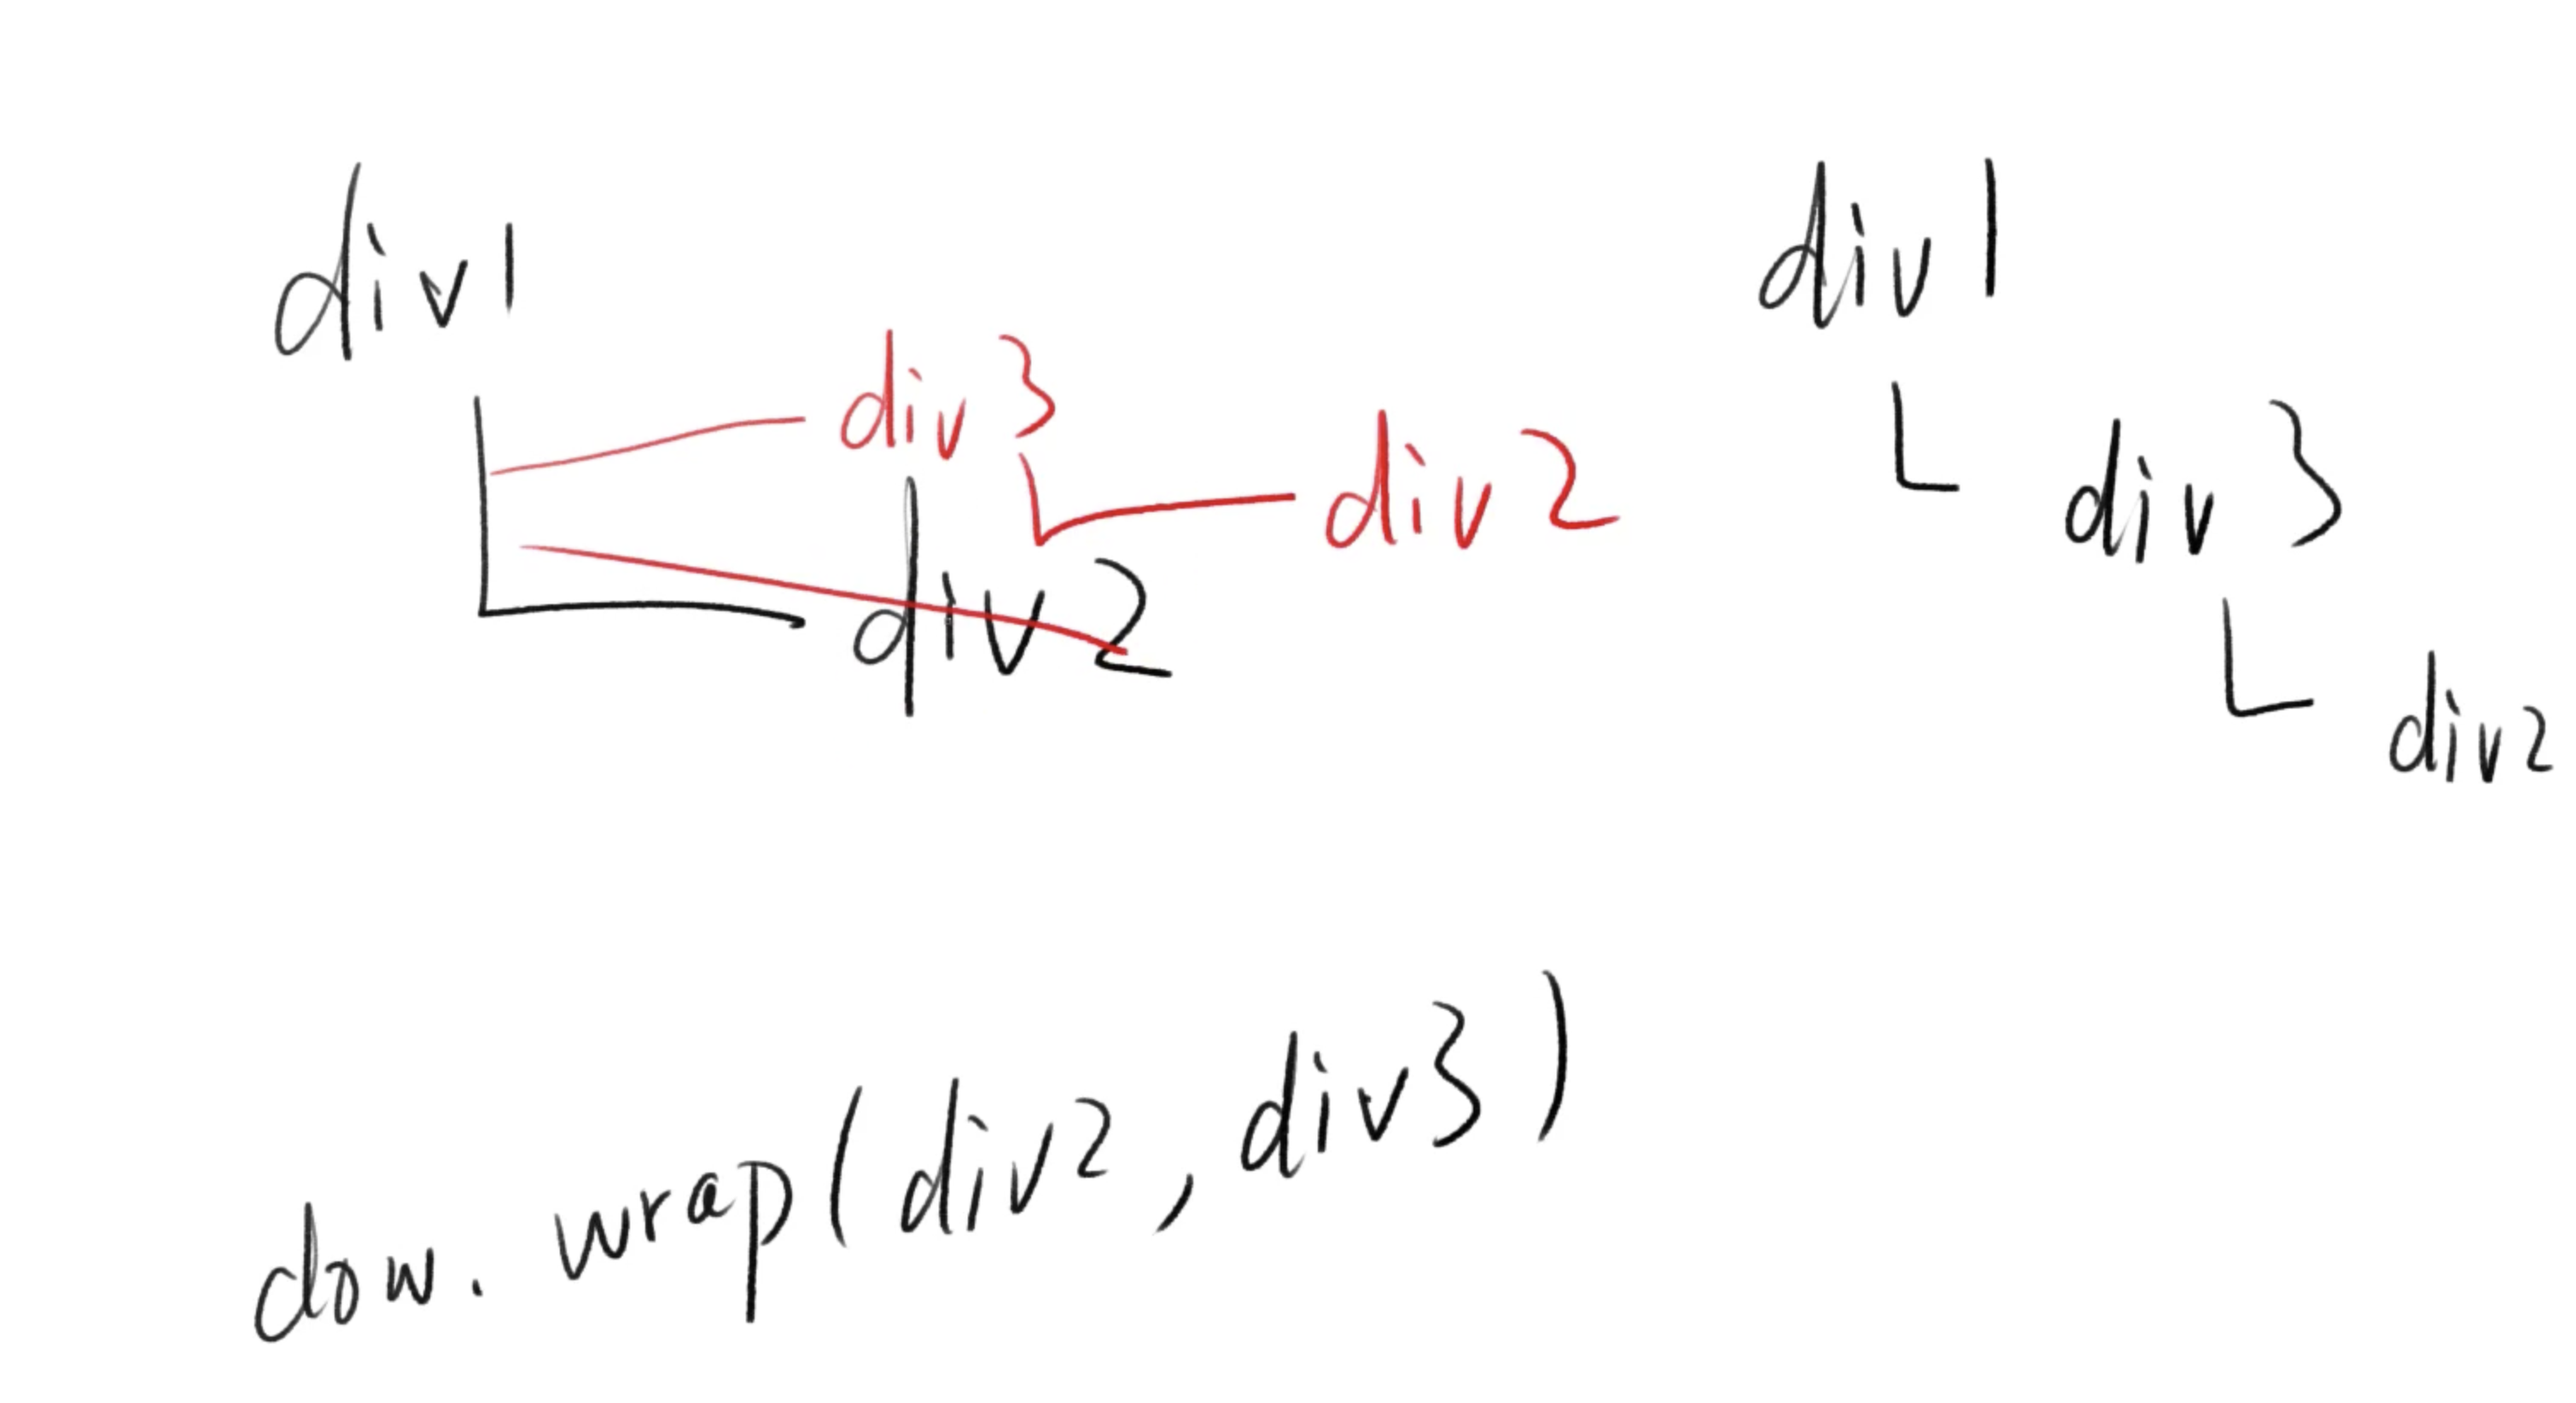 div1
div3
div2
div2
div1
div3
div2
dow. wrap(div2, div3)